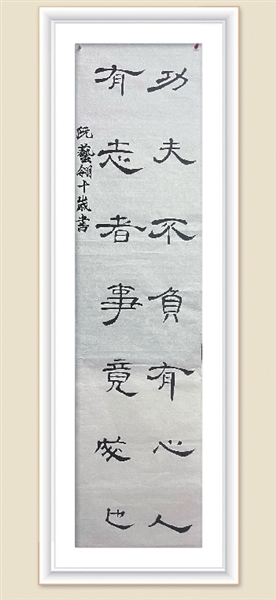 功夫不負有心人
有志者事竟成也
阮藝翎十歲書